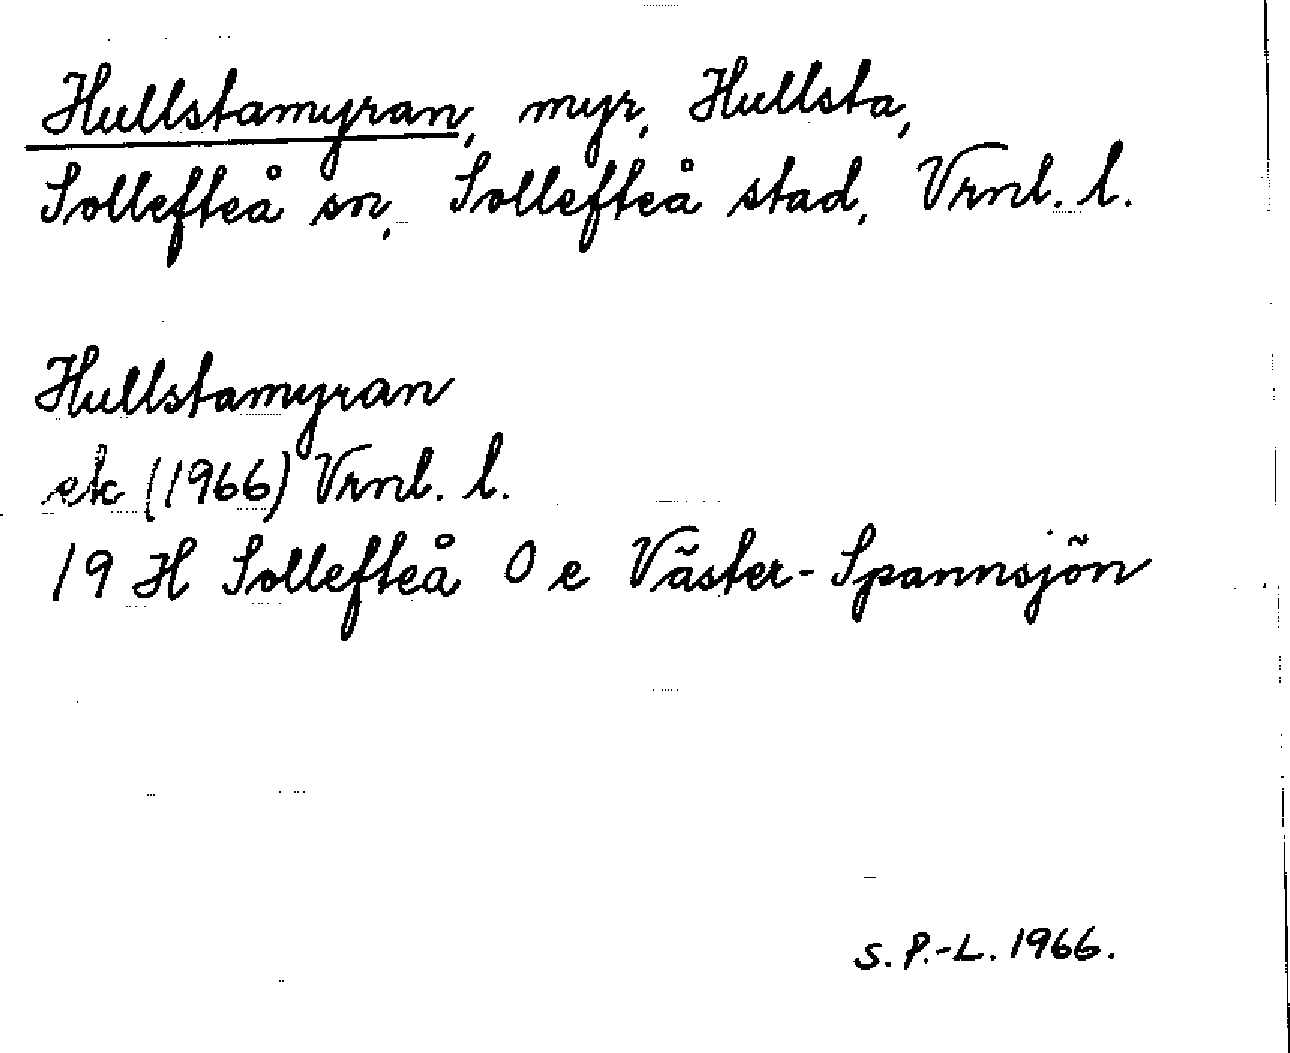 Hullstamyran, myr, Hullsta,
Sollefteå sn, Sollefteå stad, Vrnl. l.
Hullstamyran
ek (1966) Vrnl. l.
19 H Sollefteå 0 e Väster-Spannsjön
S. P.-L. 1966.